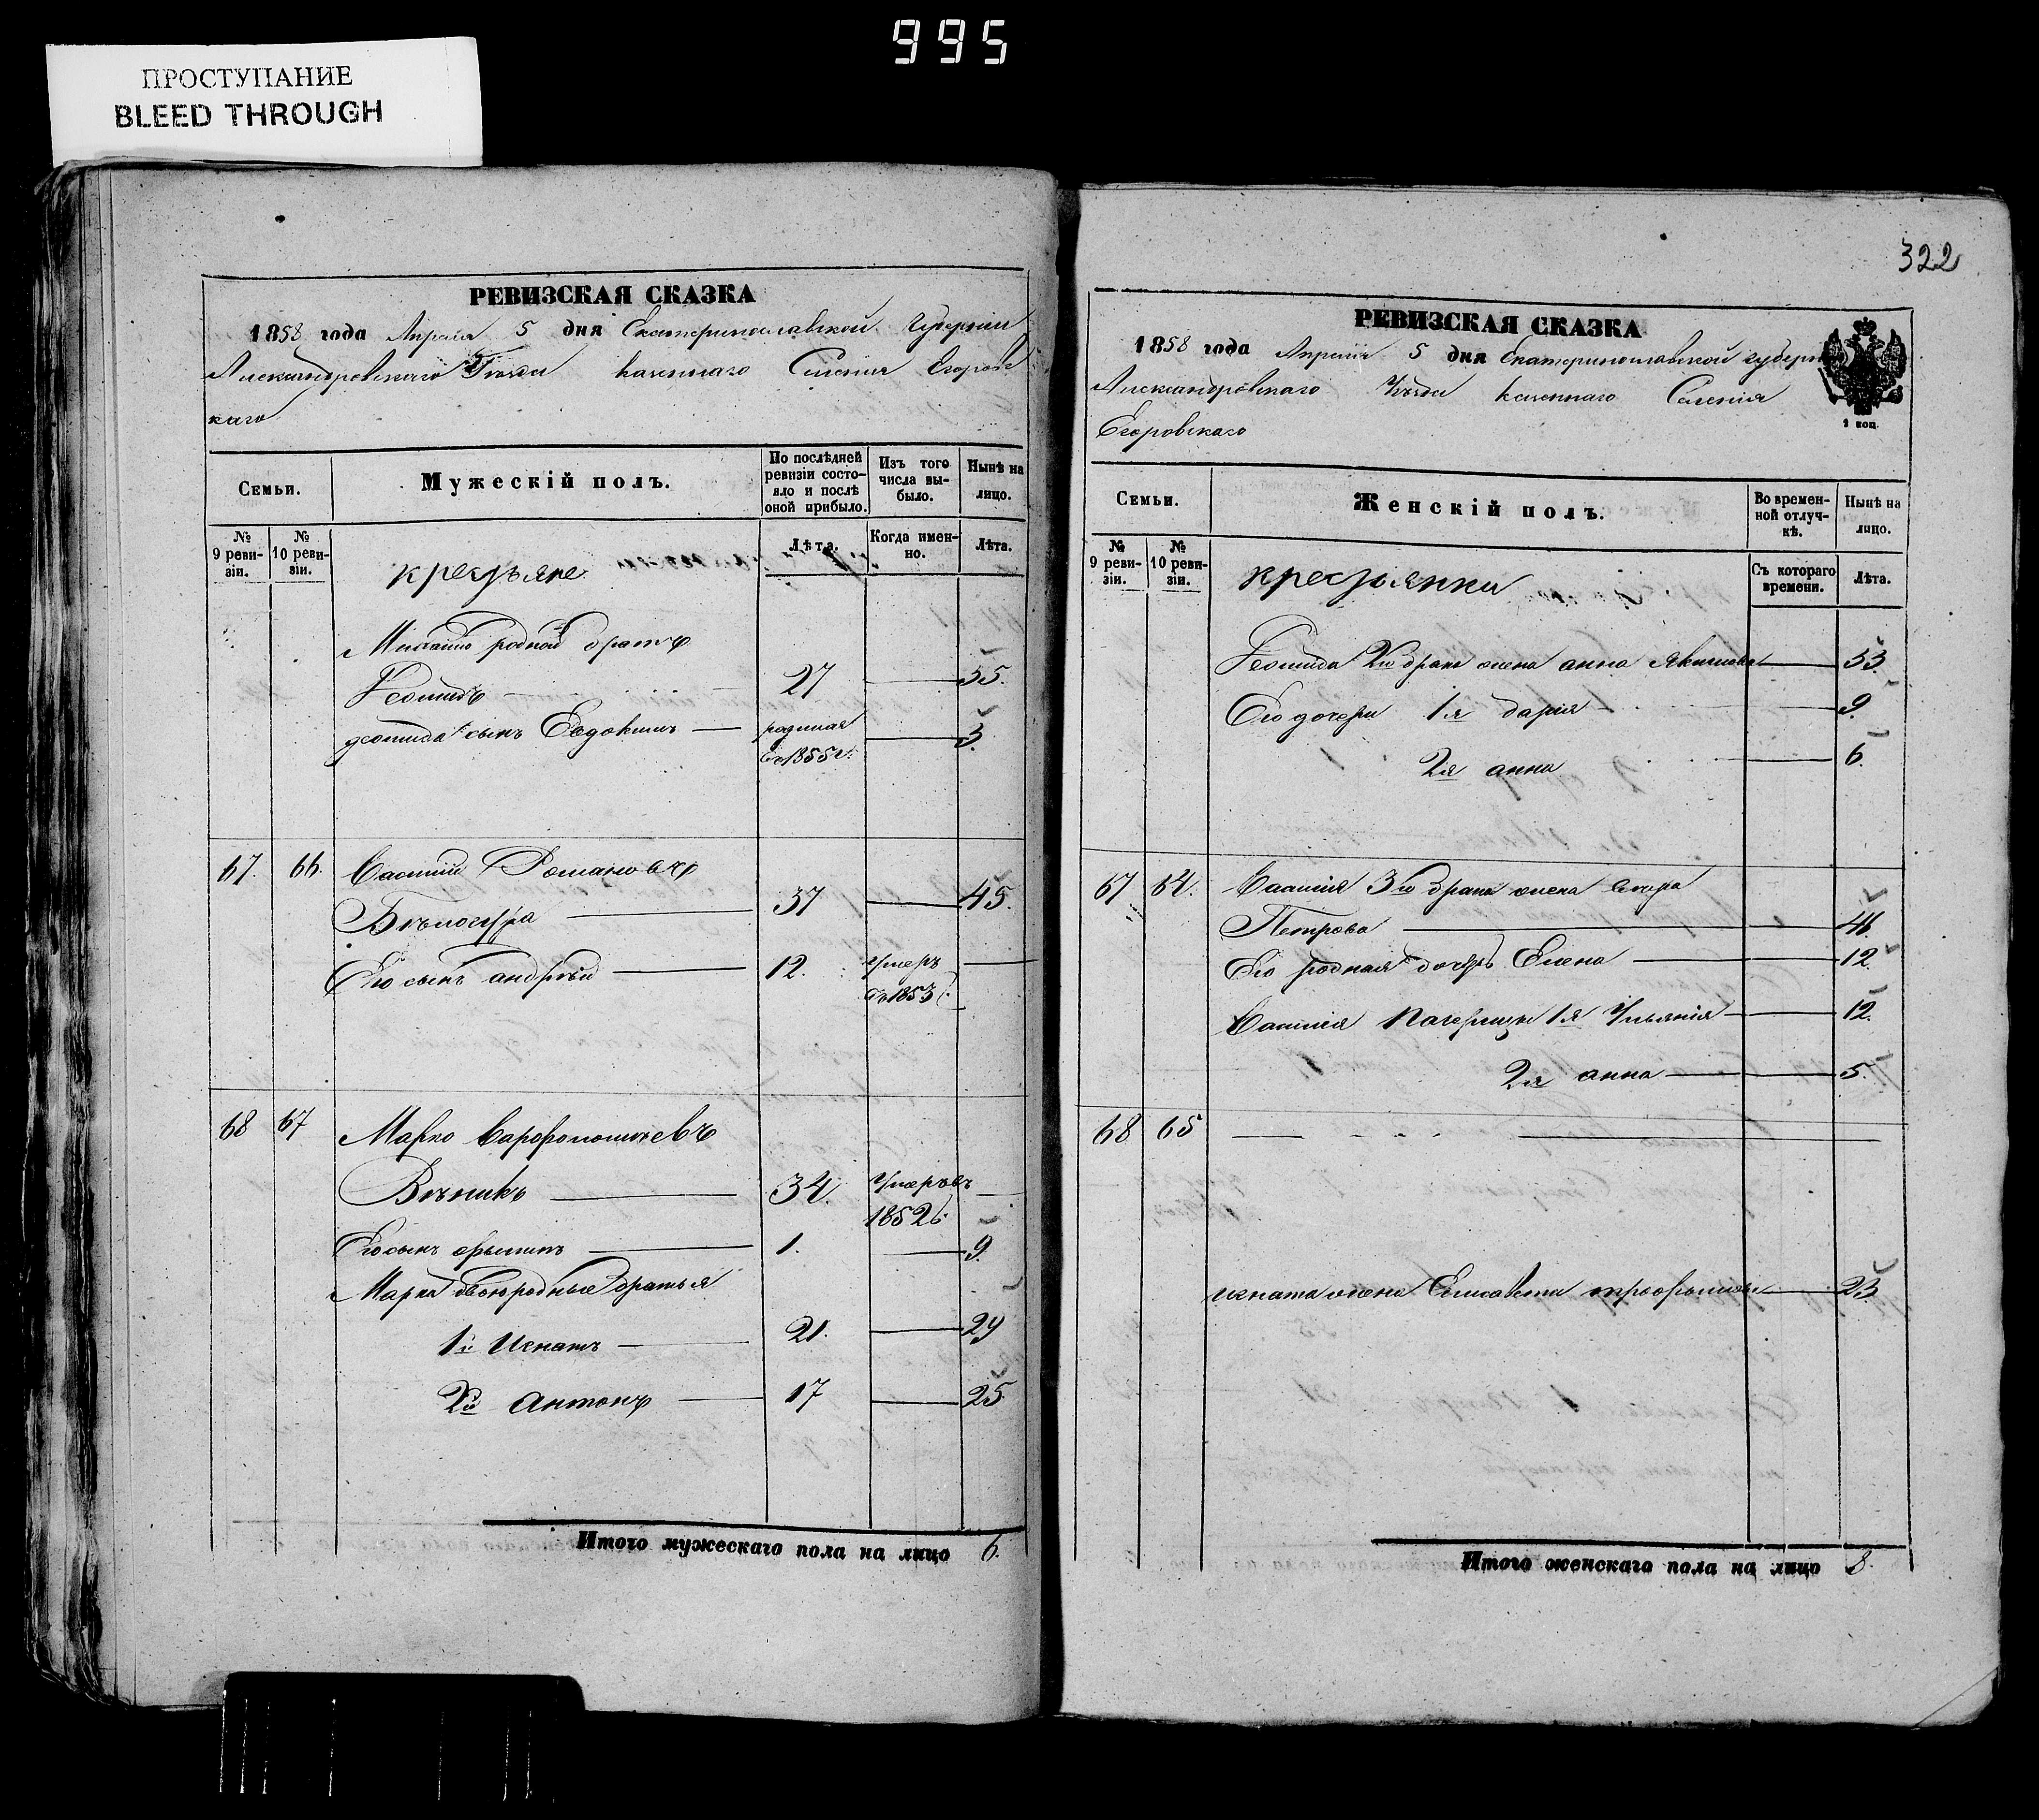 995
ПРОСТУПАНИЕ
BLEED THROUGH
РЕВИЗСКАЯ СКАЗКА
1858 года Апреля 5 дня Екатеринославской Губернии
Александровскаго Уезда казеннаго Селения Егоровс
каго
Семьи.
Мужескій полъ.
По послѣдней ревизіи состояло и послѣ оной прибыло.
Изъ того числа выбыло.
Нынѣ на лицо.
№ 9 ревизіи.
№ 10 ревизіи.
Лѣта.
Когда именно.
Лѣта.
крестьяне
родной братъ
27 35.
сынъ Евдокимъ родился 3.
въ 1855 г.
67. 66. Василий Романовъ
37 45.
Его сынъ андрей 12. умеръ
въ 1853
68 67 Марко
34. умеръ въ
1852
Его сынъ 1. 9.
Марка двоюродные братья
1й Игнатъ 21. 29
2й Антонъ 17 25.
Итого мужескаго пола на лицо 6.
322
РЕВИЗСКАЯ СКАЗКА
1858 года Апреля 5 дня Екатеринославской губерн
Александровскаго Уезда казеннаго Селения
Егоровскаго
1 коп.
Семьи.
Женскій полъ.
Во временной отлучкѣ.
Нынѣ на лицо.
№ 9 ревизіи.
№ 10 ревизіи.
Съ котораго времени.
Лѣта.
крестьянки
2го брака жена анна 53.
Его дочери 1я дария 9.
2я анна 6.
67 64. Василия 3го брака жена
Петрова
Его родная дочерь Елена 12
Василия падчерицы 1я Ульяния 12.
2я анна 5.
68 65
игната жена Елисавета 23.
Итого женскаго пола на лицо 8.